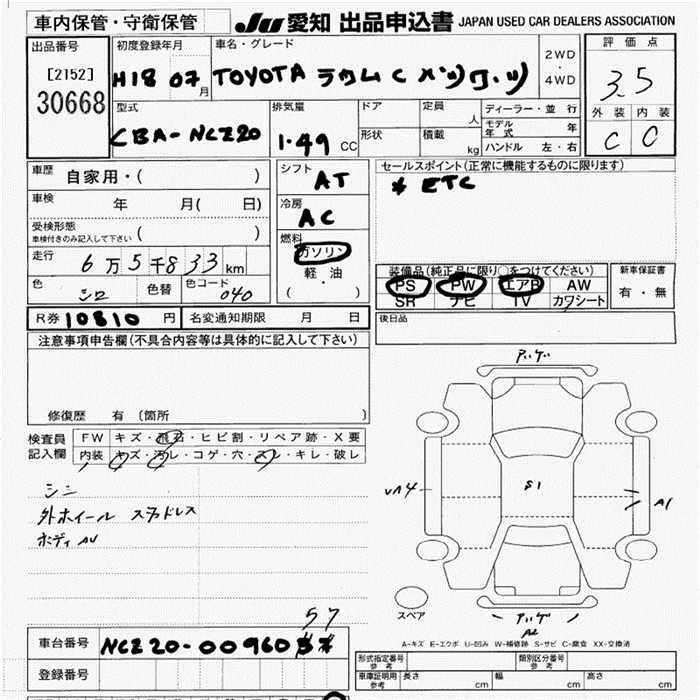 車内保管・守衛保管
JU 愛知 出品申込書 JAPAN USED CAR DEALERS ASSOCIATION
出品番号
[2152]
30668
初度登録年月
H18 07月
車名・グレード
TOYOTA ラウム C
2WD
・
4WD
評価点
3.5
外装 内装
C C
型式
CBA-NCZ20
排気量
1.49 CC
ドア
形状
定員
人
積載
kg
ディーラー・並行
モデル年式 年
ハンドル 左・右
車歴 自家用・( )
車検 年 月( 日)
受検形態
車検付きのみ記入して下さい ( )
走行 6万5千833km
色 シロ 色替 色コード 040
シフト
AT
冷房
AC
燃料
ガソリン
軽・油
( ・ )
セールスポイント(正常に機能するものに限ります)
* ETC
装備品(純正品に限り○をつけてください)
PS PW エアB AW
SR ナビ TV カワシート
新車保証書
有・無
R券 10810 円 名変通知期限 月 日
後日品
注意事項申告欄(不具合内容等は具体的に記入して下さい)
修復歴 有 〔箇所 〕
検査員
記入欄
FW キズ・飛石・ヒビ割・リペア跡・X要
内装 キズ・汚レ・コゲ・穴・スレ・キレ・破レ
シミ
外ホイール スタッドレス
ボディAU
S1
A1
A2
スペア
A-キズ E-エクボ U-凹み W-補修跡 S-サビ C-腐食 XX-交換済
57
車台番号 NCZ20-00960
登録番号
形式指定番号
参考
類別区分番号
参考
車庫証明用
参考
長さ cm 幅 cm 高さ cm